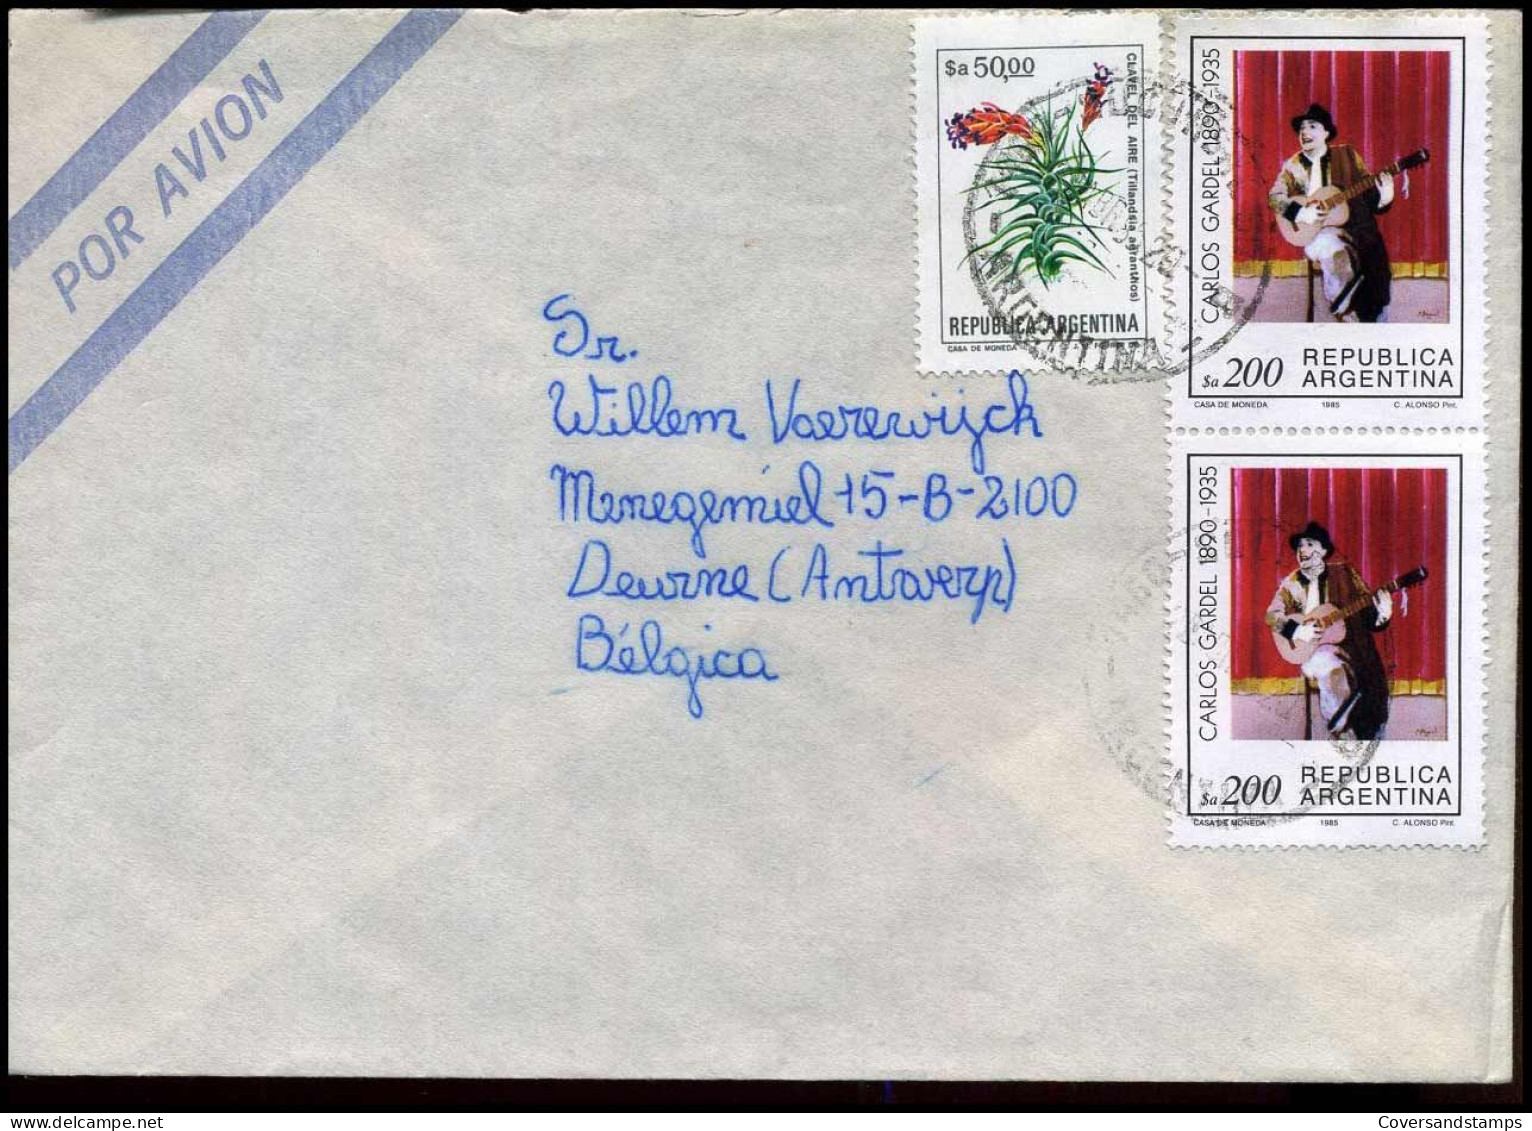 POR AVION
$a 50,00
CLAVEL DEL AIRE (Tillandsia aeranthos)
REPUBLICA ARGENTINA
CASA DE MONEDA
ARGENTINA
CARLOS GARDEL 1890-1935
$a 200 REPUBLICA ARGENTINA
CASA DE MONEDA 1985 C. ALONSO Pint.
CARLOS GARDEL 1890-1935
$a 200 REPUBLICA ARGENTINA
CASA DE MONEDA 1985 C. ALONSO Pint.
ARGENTINA
Sr.
Willem Vaerewijck
Menegemiel 15-B-2100
Deurne (Antwerp)
Bélgica
Coversandstamps